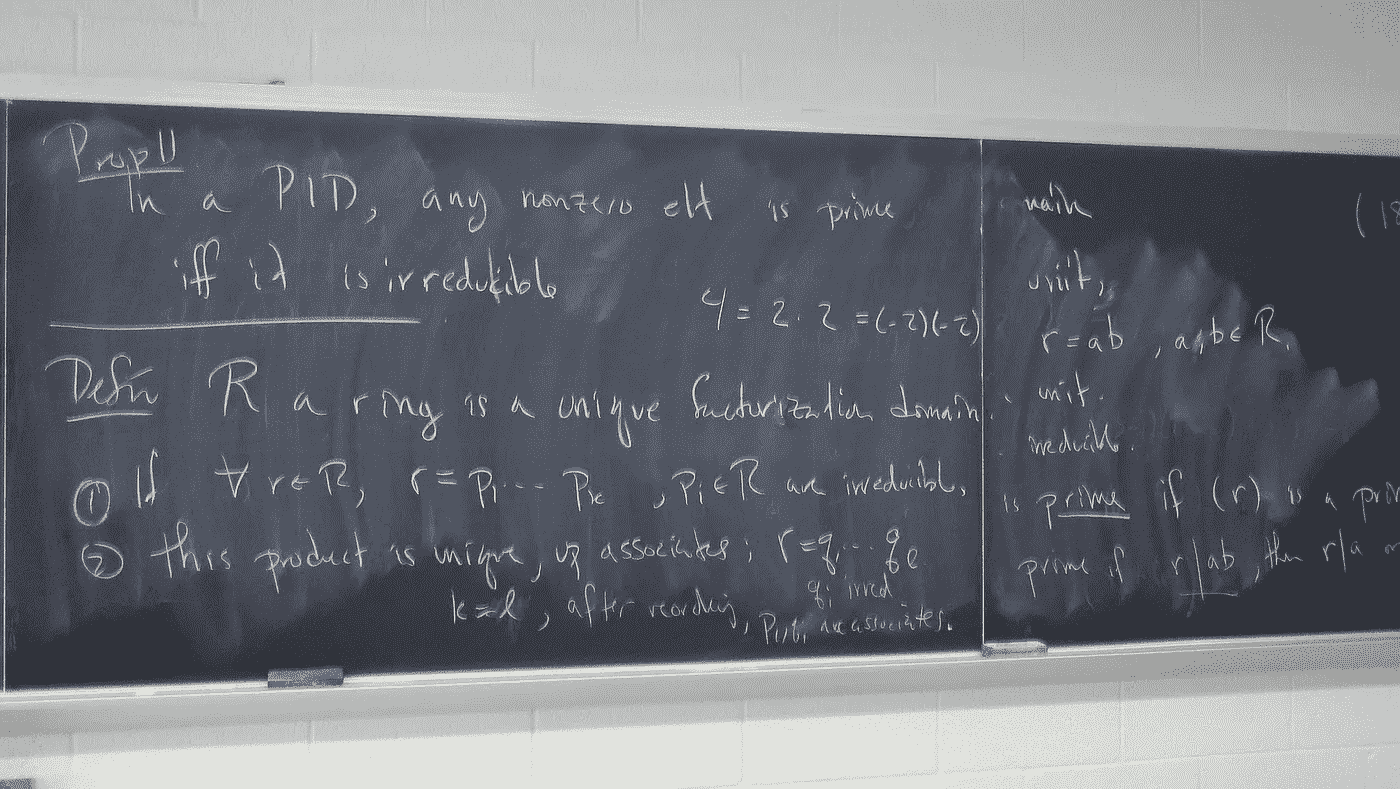 Prop 11
In a PID, any nonzero elt is prime
iff it is irreducible
4 = 2 · 2 = (-2)(-2)
Defn R a ring is a unique factorization domain
① If ∀ r ∈ R, r = p₁ ... pₖ , pᵢ ∈ R are irreducible,
② this product is unique, up associates; r = q₁ ... qₗ
qᵢ irred
k = l , after reordering, pᵢ, qᵢ are associates.
main
(18
unit,
r = ab , a, b ∈ R,
unit.
irreducible.
is prime if (r) is a prim
prime if r | ab , then r | a or